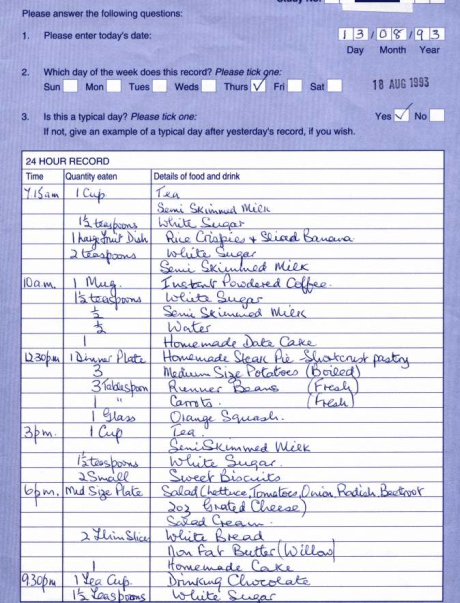 Please answer the following questions:
1. Please enter today's date: 13/08/93
Day Month Year
2. Which day of the week does this record? Please tick one:
Sun Mon Tues Weds Thurs ✓ Fri Sat 18 AUG 1993
3. Is this a typical day? Please tick one: Yes ✓ No
If not, give an example of a typical day after yesterday's record, if you wish.
24 HOUR RECORD
Time Quantity eaten Details of food and drink
7.15am 1 Cup Tea
Semi Skimmed Milk
1½ teaspoons White Sugar
1 large fruit Dish Rice Crispies + Sliced Banana
2 teaspoons White Sugar
Semi Skimmed Milk
10am 1 Mug. Instant Powdered Coffee.
1½ teaspoons White Sugar
½ Semi Skimmed Milk
½ Water
1 Homemade Date Cake
12.30pm 1 Dinner Plate Homemade Steak Pie Shortcrust pastry
3 Medium Size Potatoes (Boiled)
3 Tablespoon Runner Beans (Fresh)
1 " Carrots. (Fresh)
1 Glass Orange Squash.
3pm. 1 Cup Tea.
Semi Skimmed Milk
1½ teaspoons White Sugar.
2 Small Sweet Biscuits
6pm. Mid Size Plate Salad (hettuce, Tomatoes, Onion, Radish, Beetroot
2oz Grated Cheese)
Salad Cream.
2 Thin Slice White Bread
Non Fat Butter (Willow)
1 Homemade Cake
9.30pm 1 Tea Cup. Drinking Chocolate
1½ Teaspoons White Sugar